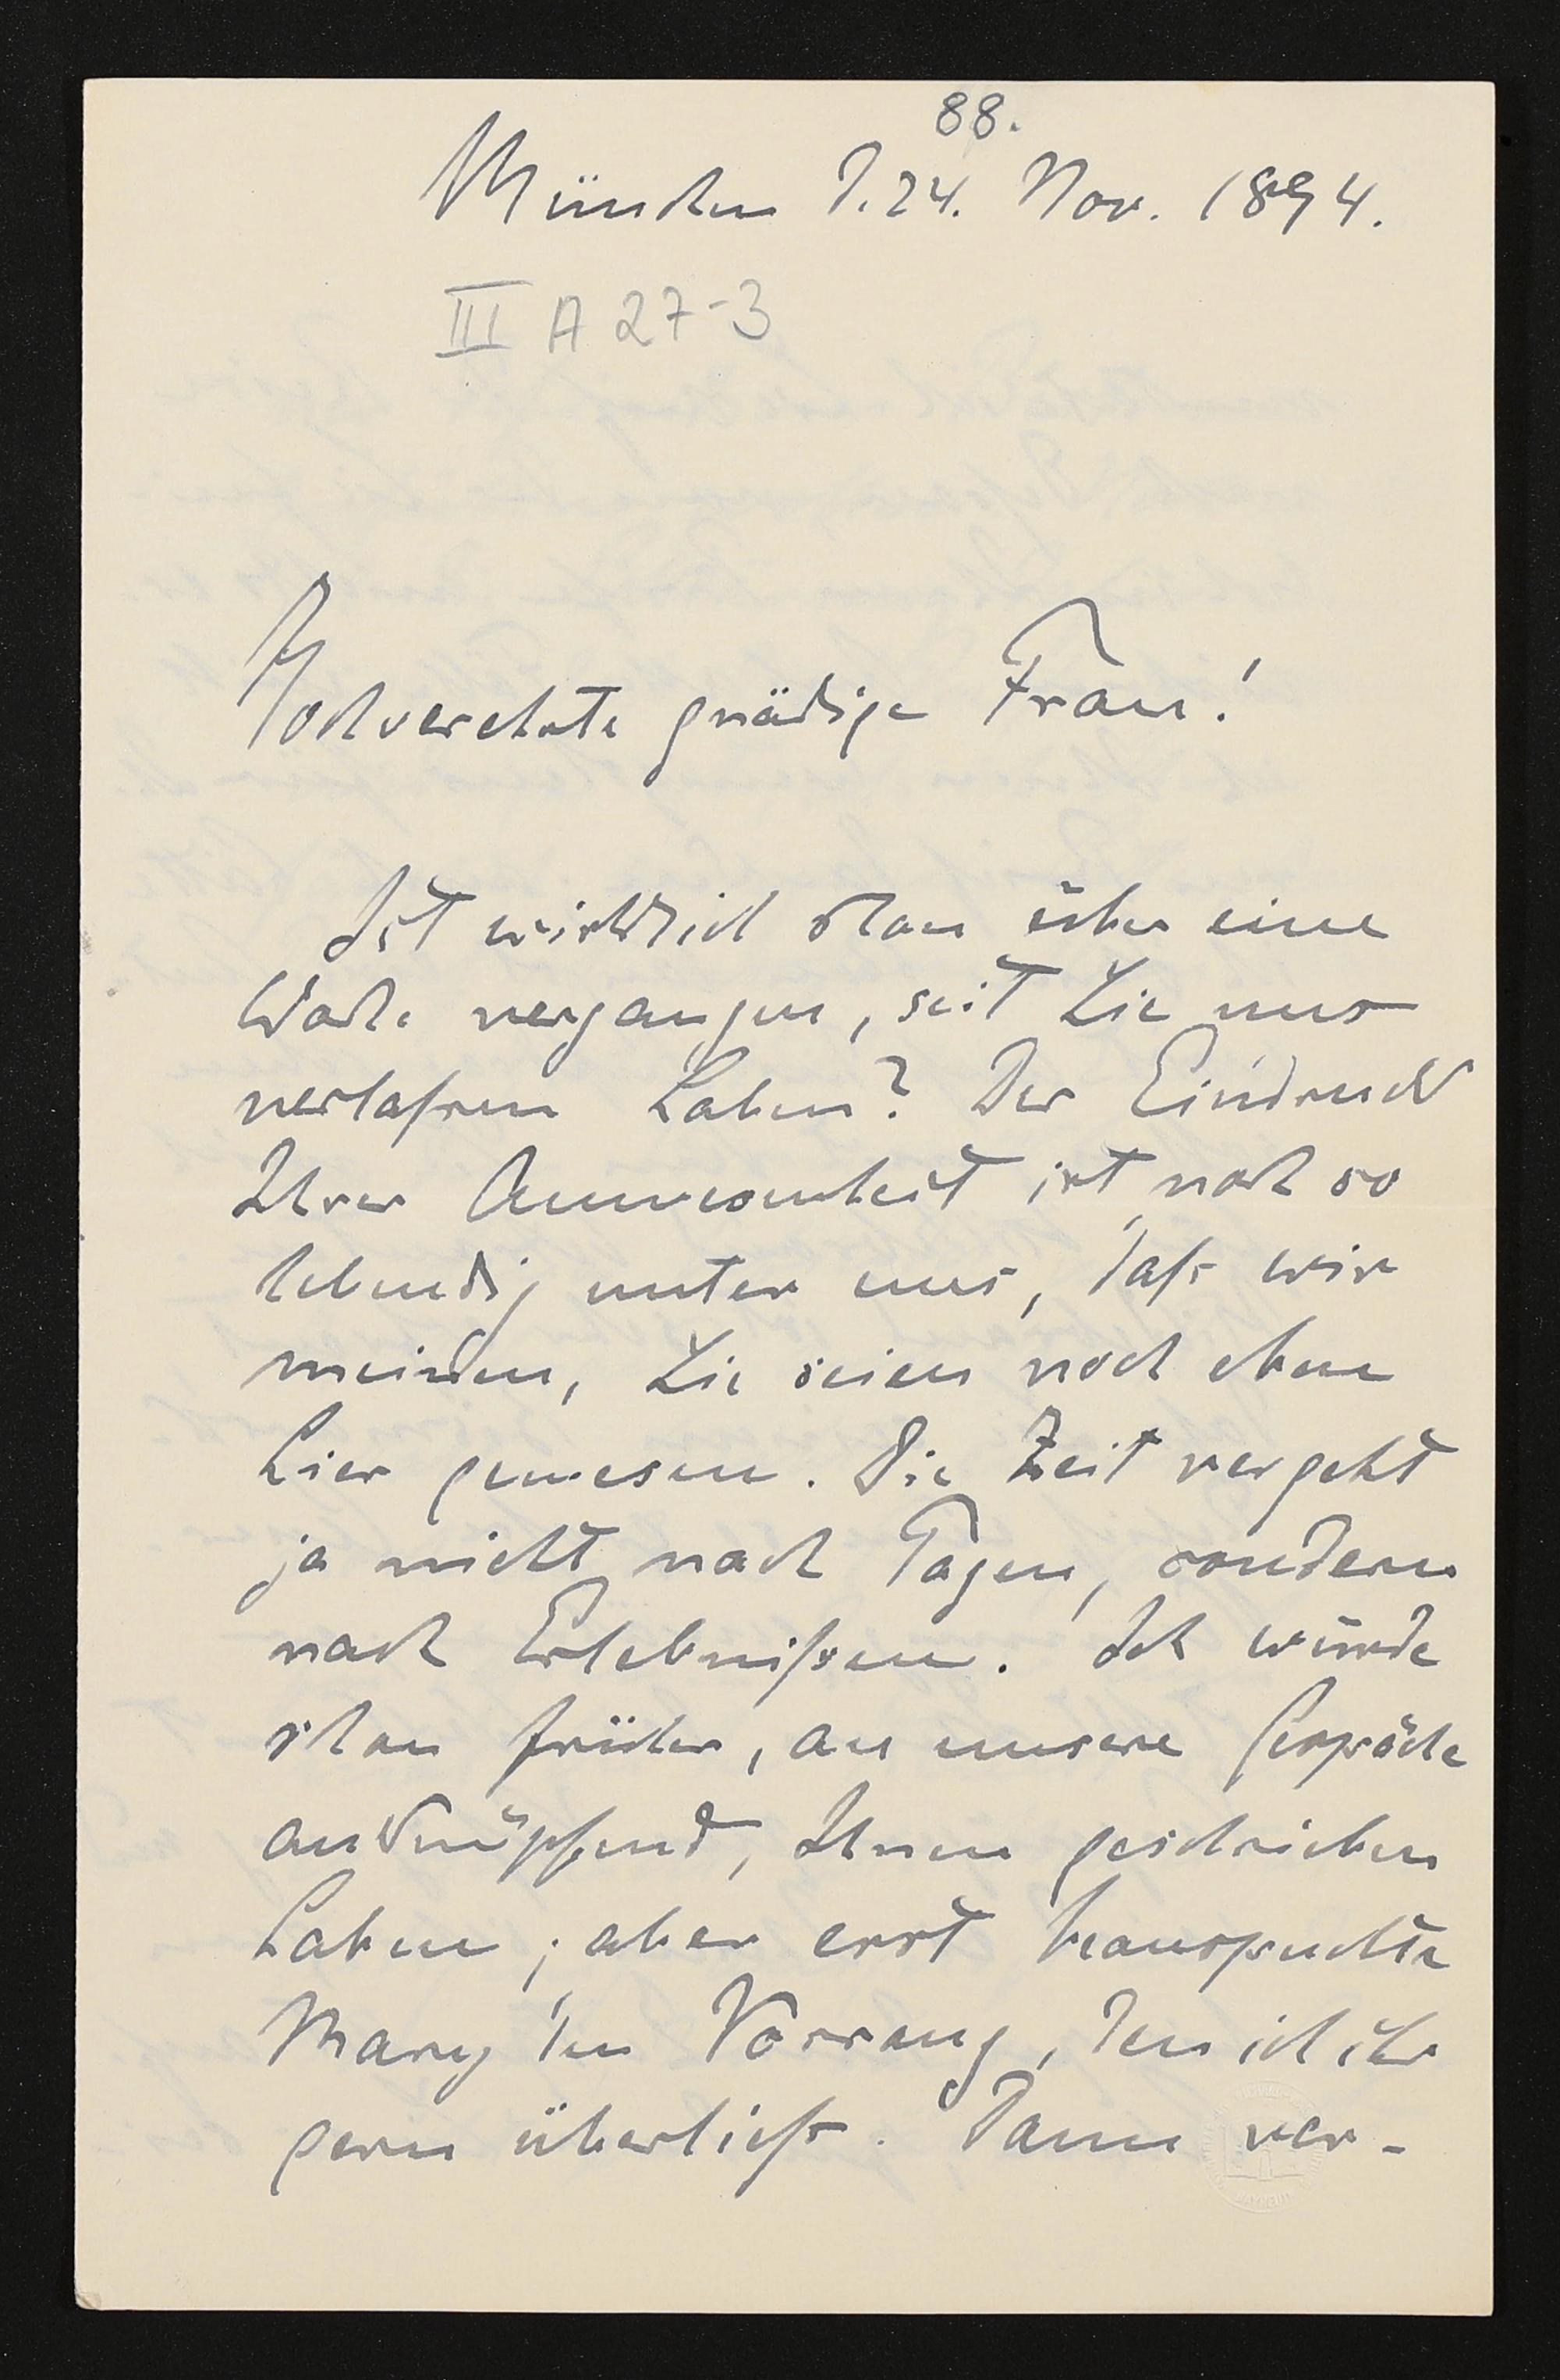 88.
München d. 24. Nov. 1894.
III A 27-3
Hochverehrte gnädige Frau!
Ist wirklich schon über eine
Woche vergangen, seit Sie uns
verlaßen haben? Der Eindruck
Ihrer Anwesenheit ist noch so
lebendig unter uns, daß wir
meinen, Sie seien noch eben
hier gewesen. Die Zeit vergeht
ja nicht nach Tagen, sondern
nach Erlebnißen. Ich würde
schon früher, an unsere Gespräche
anknüpfend, Ihnen geschrieben
haben; aber erst beanspruchte
Mary den Vorrang, den ich ihr
gern überließ. Dann ver-